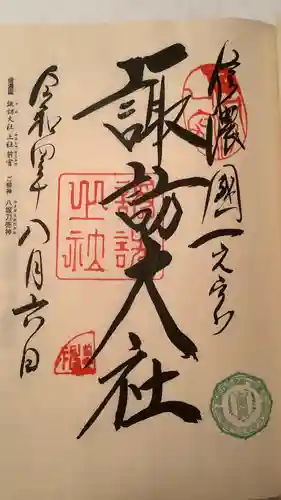 信濃國一之宮
諏訪大社
令和四年八月六日
信濃國
諏訪大社 上社 前宮
ご祭神 八坂刀売神